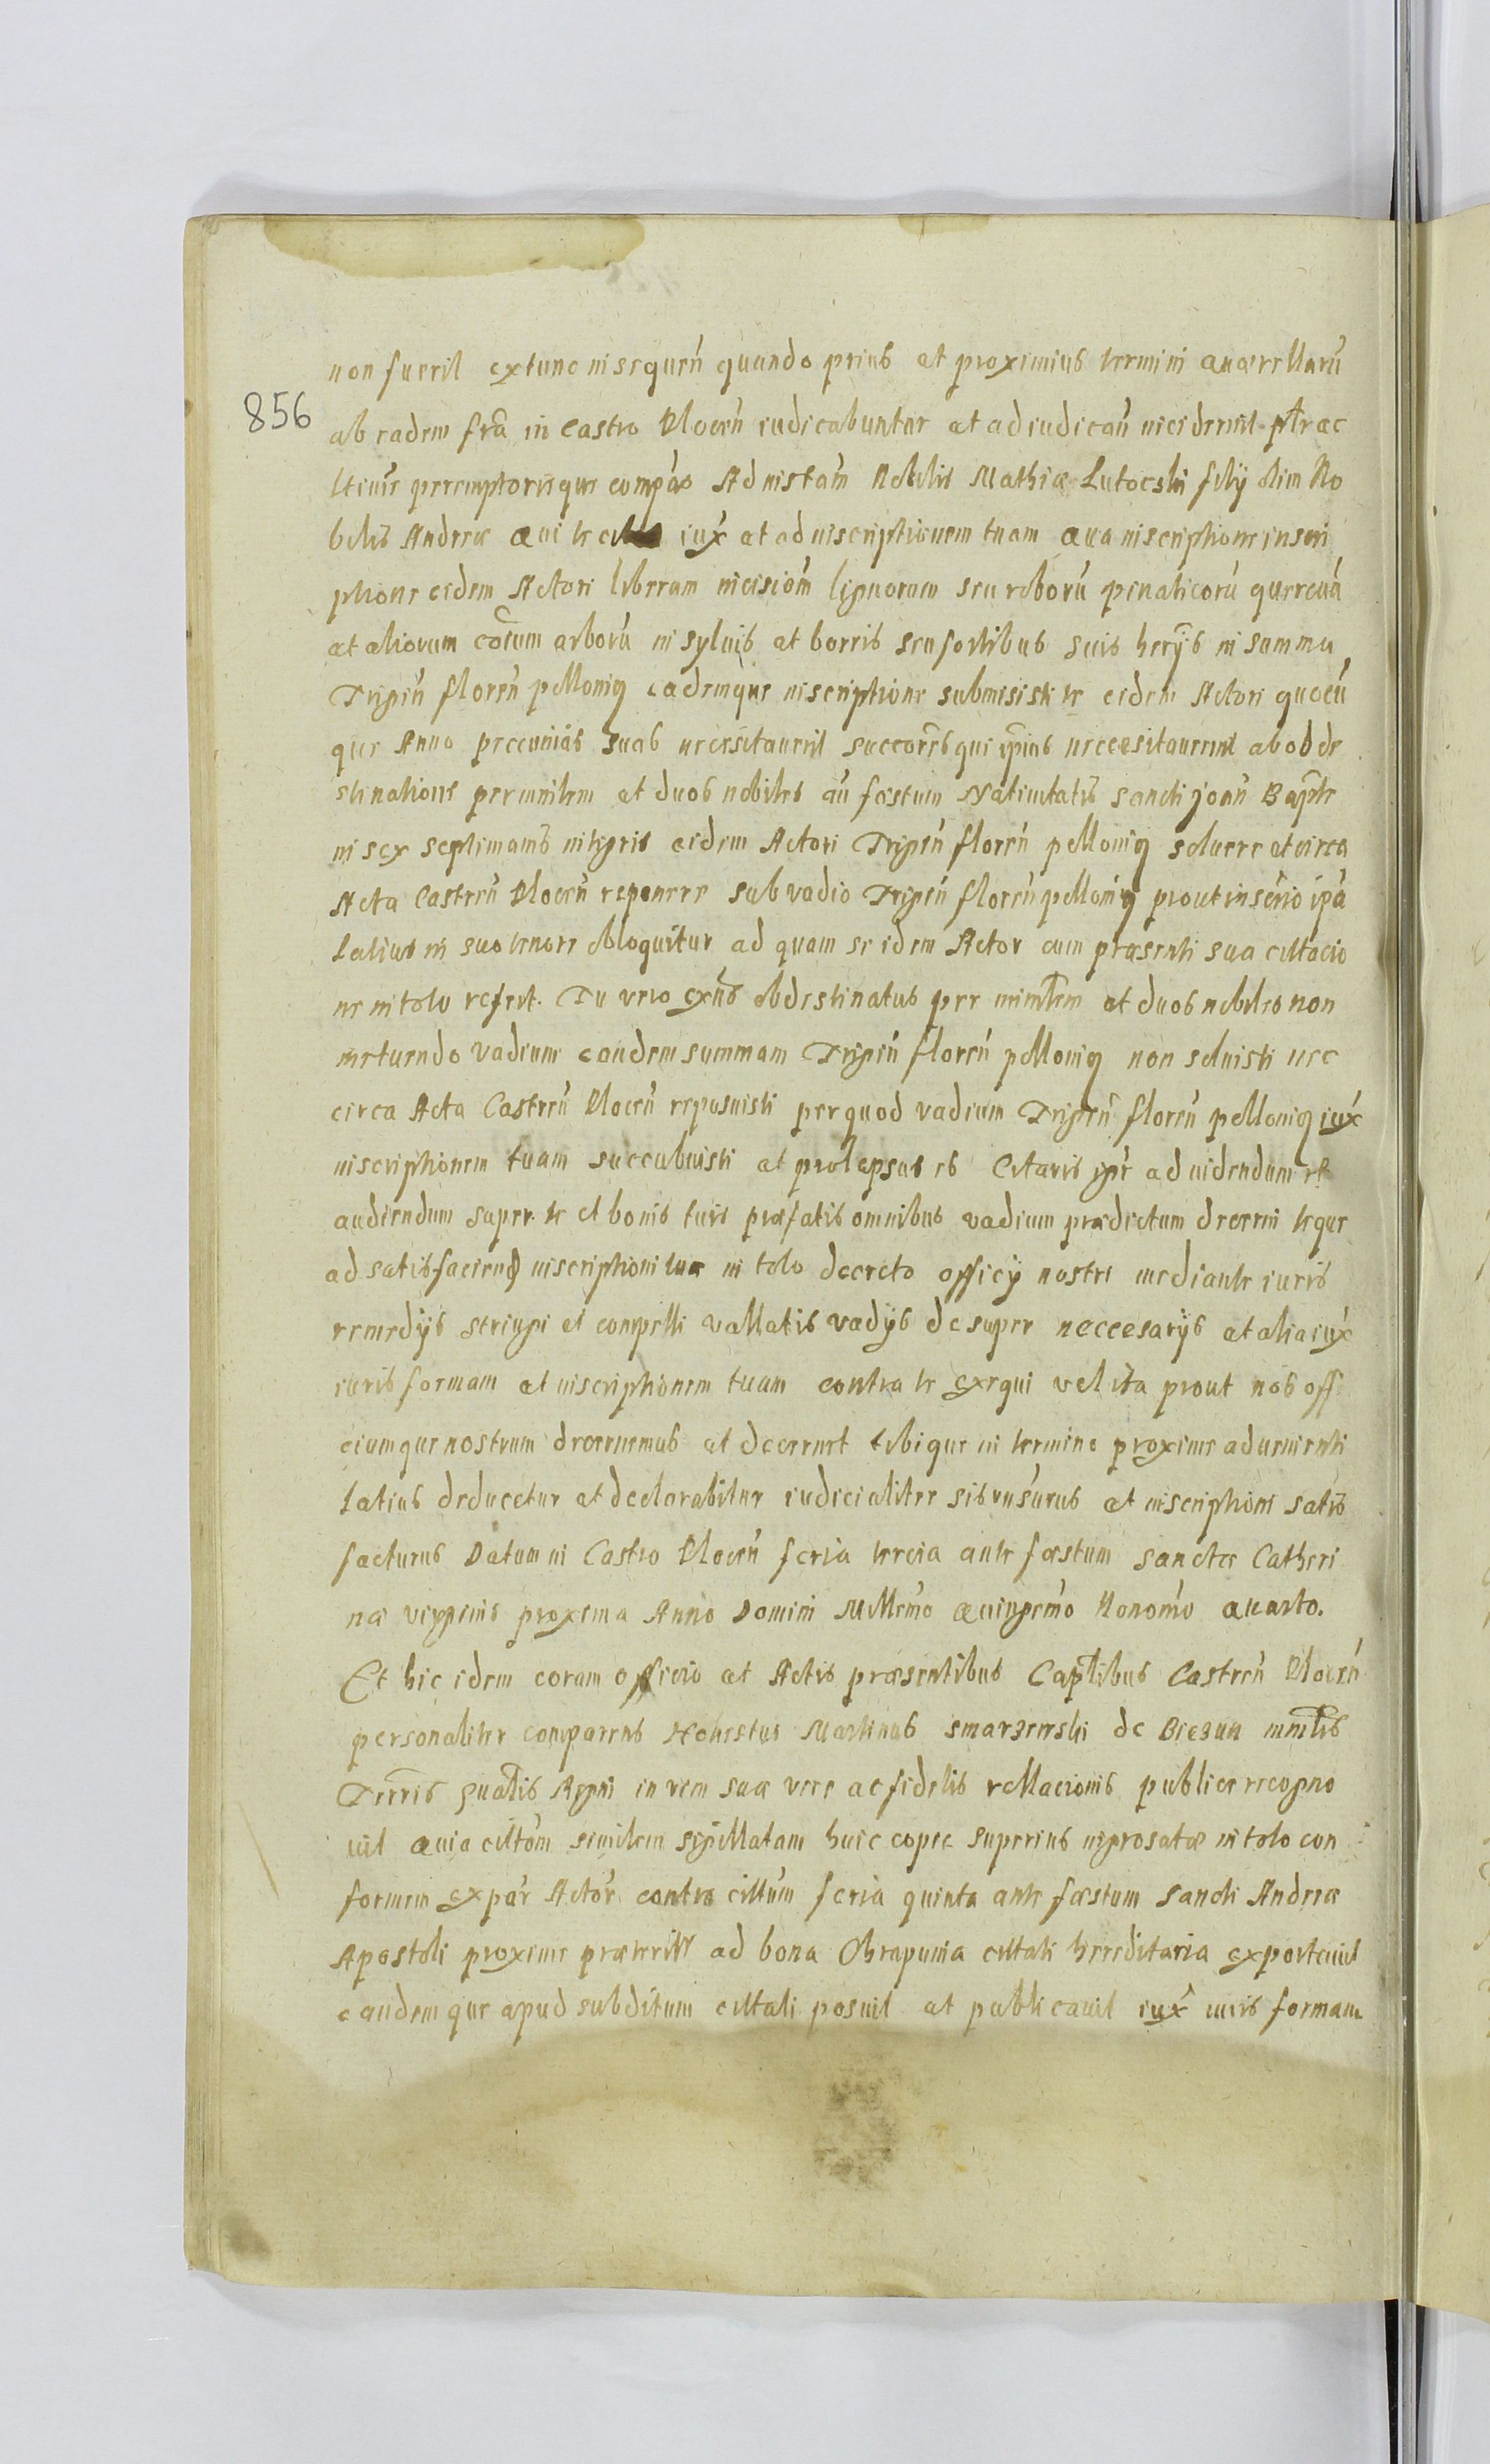 856
non fueril extunc in sequeń quando prius et proximius termini quaerellarū
ab eadem fra in Castro Plocen̄ iudicabuntur et adiudicań inciderint ptrac
lticus peremptoriisque compās Ad instam̄ Nobilis Mathiæ Lutocski filij olim No
bilis Andreæ qui te iux̄ et ad inscriptionem tuam qua inscriptione inscri
ptione eidem Actori liberam incisiōm lignorum seu roborū penaticorū quercuū
et aliorum eōrum arborū in syluis et borris seu sortibus suis herijs in summa
Trigeń floreń pollonig eademque inscriptione submisisti te eidem Actori quocū
que Anno peccunias suas necesitauerit succores̄que ip̄ius neccesitauerint ab obde
stinatione per mnilem et duos nobiles an̄ fæstum Natiuitatis sancti joan̄ Bap̄te
in sex septimanis integris eidem Actori Trigeń floreń pollonig soluere et circa
Acta Castreń Ploceń reponere sub vadio Trigeń floreń pollonig prout inscrio ipa
latius in suo tenore obloquitur ad quam se idem Actor cum præsenti sua cittacio
ne in toto refert. Tu vero exn̄s obdestinatus per mintlem et duos nobiles non
metuendo vadium eandem summam Trigeń floreń pollonig non soluisti nec
circa Acta Castreń Ploceń reposuisti per quod vadium Trigeń floreń pollonig iux̄
inscriptionem tuam succubuisti et prolapsus es Citaris igr̄ ad uidendum et
audiendum super te et bonis tuis præfatis omnibus vadium prædictum decerni teque
ad satisfaciend inscriptioni tuæ in toto decreto officij nostri mediante iuris
remedijs stringi et compelli vallatis vadijs desuper neccesarijs et alia iux̄
iuris formam et inscriptionem tuam contra te exequi vel ita prout nos offi
ciumque nostrum decernemus et decernet tibique in termino proxime adueniente
latius deducetur et declarabitur iudicialiter sis rusurus et inscriptioni satis
facturus Datum in Castro Ploceń feria tercia ante fæstum sanctæ Catheri
næ virginis proxima Anno Domini Millem̄o quingem̄o Nonom̄o quarto.
Et hic idem coram officio et Actis præsentibus Captlibus Castreń Ploceń
personaliter comparens Honestus Martinus smarzewski de Biezun mntlis
Terris gnalis Regni in vim suæ vere ac fidelis rellacionis publice recogno
uit quia cittōm similem sigillatam huic copiæ superius ingrosatæ in toto con
formem ex par Actōr contra cittum feria quinta ante fæstum sancti Andreæ
Apostoli proxime præterita ad bona Chrapunia cittati hereditaria exportauit
eandemque apud subditum cittati posuit et publicauit iux̄ iuris formam